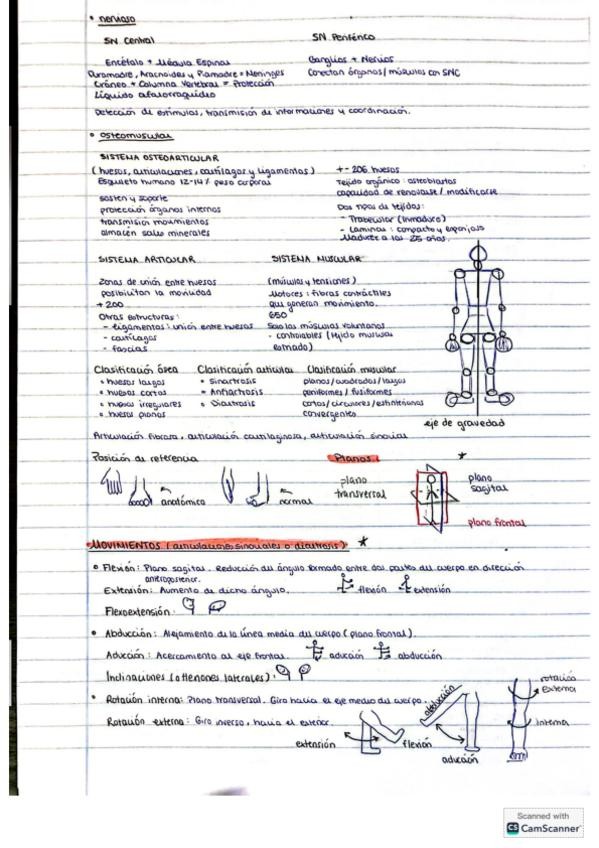 • nervioso
SN Central
SN Periférico
Encéfalo + Médula Espinal
Ganglios + Nervios
Duramadre, Aracnoides y Piamadre = Meninges
Conectan órganos/músculos con SNC
Cráneo + Columna Vertebral = Protección
Líquido
Detección de estímulos, transmisión de informaciones y coordinación.
• Osteomuscular
SISTEMA OSTEOARTICULAR
(huesos, articulaciones, cartílagos y ligamentos)
+- 206 huesos
Esqueleto humano 12-14% peso corporal
Tejido orgánico: osteoblastos
capacidad de renovarse/modificarse
sostén y soporte
Dos tipos de tejidos:
protección órganos internos
- Trabecular (inmaduro)
transmisión movimientos
- Laminar: compacto y esponjoso
almacén sales minerales
Madurez a los 25 años.
SISTEMA ARTICULAR
SISTEMA MUSCULAR
Zonas de unión entre huesos
(músculos y tensiones)
posibilitan la movilidad
Motores: fibras contráctiles
+200
que generan movimiento.
Otras estructuras:
650
- Ligamentos: unión entre huesos
Solo los músculos voluntarios
- cartílagos
- controlables (tejido muscular
- fascias
estriado)
Clasificación ósea
Clasificación articular
Clasificación muscular
• huesos largos
• Sinartrosis
planos/cuadrados/largos
• huesos cortos
• Anfiartrosis
peniformes/fusiformes
• huesos irregulares
• Diartrosis
cortos/circulares/esfinterianos
• huesos planos
convergentes
eje de gravedad
Articulación fibrosa, articulación cartilaginosa, articulación sinovial
Posición de referencia
Planos:
*
anatómico
normal
plano
transversal
plano
sagital
plano frontal
MOVIMIENTOS (articulaciones sinoviales o diartrosis) *
• Flexión: Plano sagital. Reducción del ángulo formado entre dos partes del cuerpo en dirección
anteroposterior.
Extensión: Aumento de dicho ángulo.
flexión
extensión
Flexoextensión:
• Abducción: Alejamiento de la línea media del cuerpo (plano frontal).
Aducción: Acercamiento al eje frontal.
aducción
abducción.
Inclinaciones (o flexiones laterales):
• Rotación interna: Plano transversal. Giro hacia el eje medio del cuerpo.
Rotación externa: Giro inverso, hacia el exterior.
extensión
flexión
abducción
aducción
rotación
externa
interna
Scanned with
CS CamScanner